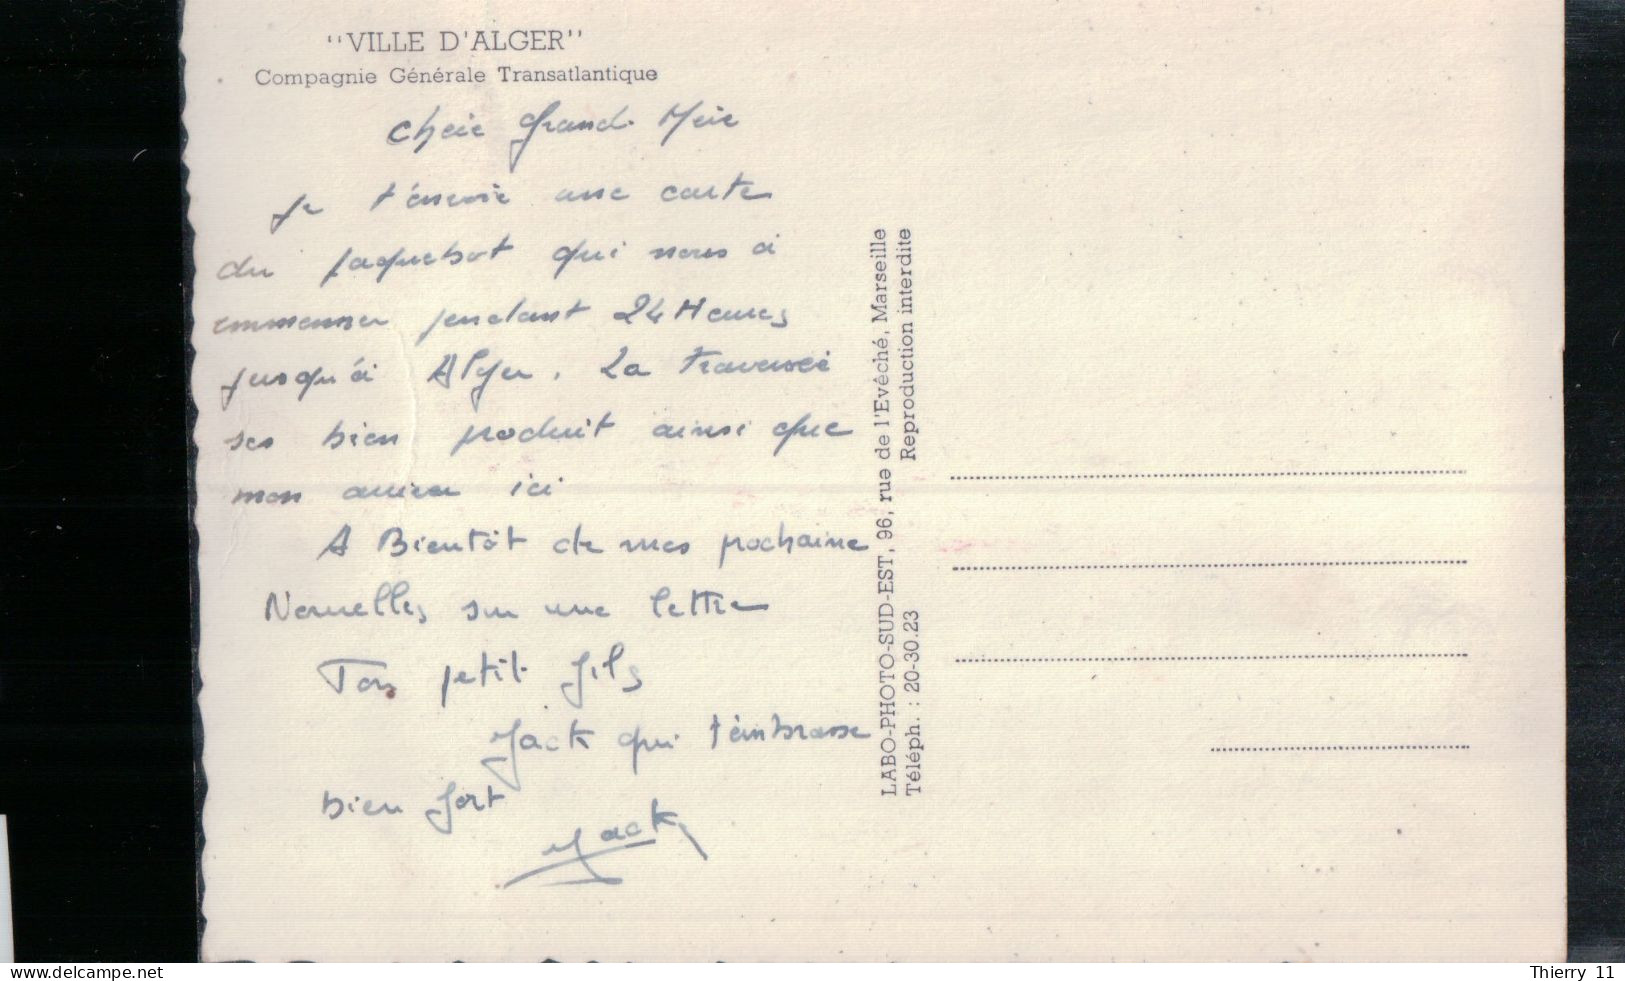 "VILLE D'ALGER"
Compagnie Générale Transatlantique
Chère Grand-Mère
Je t'envoie une carte
du paquebot qui nous à
emmenner pendant 24 Heures
jusqu'à Alger. La Traversée
ses bien produit ainsi que
mon arriver ici
A Bientôt de mes prochaine
Nouvelles sur une lettre
Ton petit fils
Jack qui t'embrasse
bien fort
Jack
LABO-PHOTO-SUD-EST, 96, rue de l'Evéché, Marseille
Téléph. : 20-30.23 Reproduction interdite
www.delcampe.net
Thierry 11